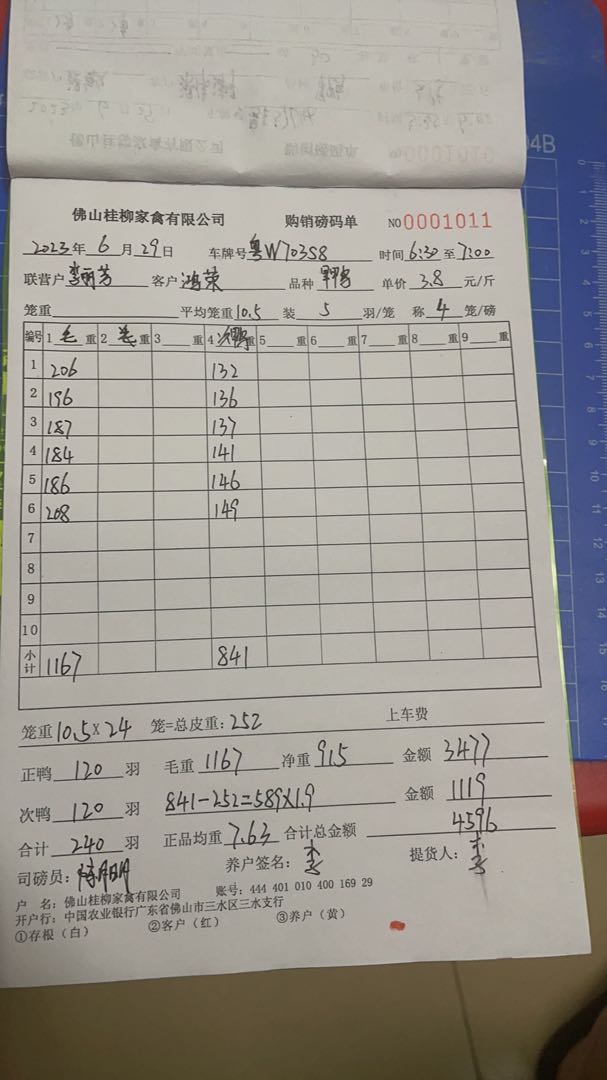 佛山桂柳家禽有限公司 购销磅码单 NO 0001011
2023年 6 月 29 日 车牌号 粤W703S8 时间 6:30 至 7:00
联营户 李丽芳 客户 鸿荣 品种 单价 3.8 元/斤
笼重 平均笼重 10.5 装 5 羽/笼 称 4 笼/磅
编号 1 毛 重 2 重 3 重 4 次鸭 重 5 重 6 重 7 重 8 重 9 重
1 206 132
2 196 136
3 187 137
4 184 141
5 186 146
6 208 149
7
8
9
10
小计 1167 841
笼重 10.5×24 笼=总皮重: 252 上车费
正鸭 120 羽 毛重 1167 净重 915 金额 3477
次鸭 120 羽 841-252=589×1.9 金额 1119
合计 240 羽 正品均重 7.63 合计总金额 4596
司磅员: 养户签名: 李 提货人: 李
户 名: 佛山桂柳家禽有限公司 账号: 444 401 010 400 169 29
开户行: 中国农业银行广东省佛山市三水区三水支行
①存根（白） ②客户（红） ③养户（黄）